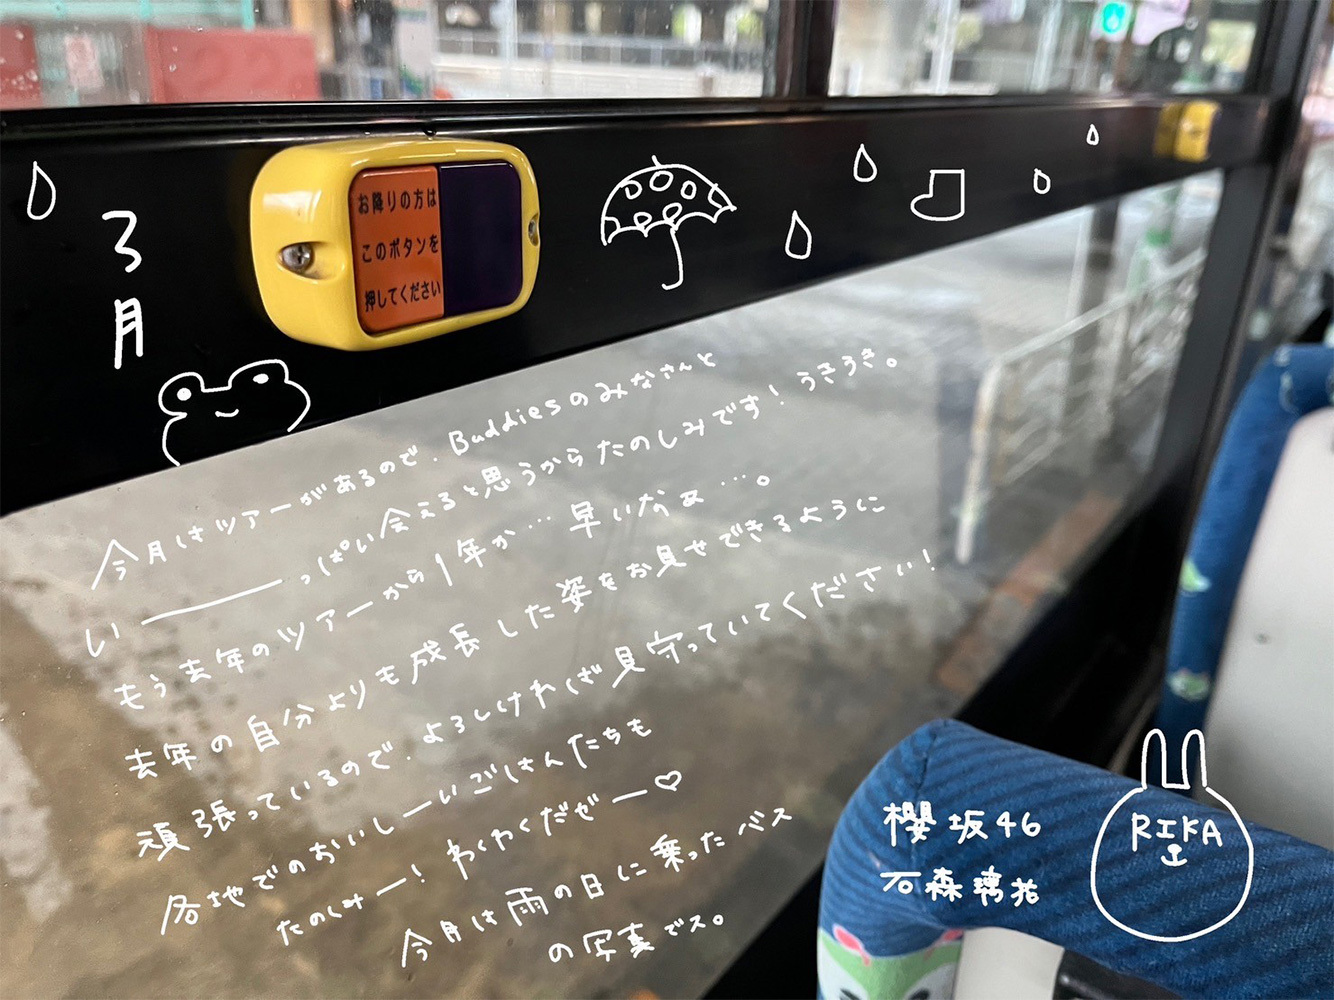 3月
お降りの方は
このボタンを
押してください
今月はツアーがあるので、Buddiesのみなさんと
い――っぱい会えると思うからたのしみです！うきうき。
もう去年のツアーから1年か…早いなぁ…。
去年の自分よりも成長した姿をお見せできるように
頑張っているので、よろしければ見守っていてください！
各地でのおいしーいごはんたちも
たのしみー！わくわくだぜー♡
今月は雨の日に乗ったバス
の写真でス。
櫻坂46
石森璃花
RIKA